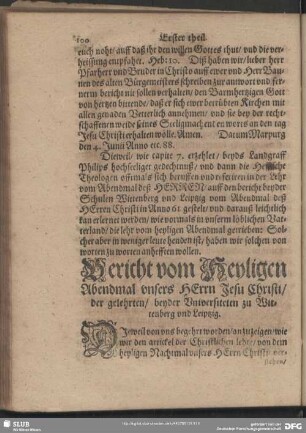 100 Erster theil
euch noht/ auff daß ihr den willen Gottes thut/ und die ver-
heissung empfahet. Heb: 10. Diß haben wir/ lieber herr
Pfarherr und Bruder in Christo auff ewer und Herr Bau-
nen des alten Bürgemeisters schreiben zur antwort und fer-
nerm bericht nit sollen verhalten/ den Barmhertzigen Gott
von hertzen bittende/ daß er sich ewer betrübten Kirchen mit
allen genaden Vetterlich annehmen/ und sie bey der recht-
schaffenen weide seines Seeligmachenten wortes an den tag
Jesu Christi erhalten wolle. Amen. Datum Marpurg
den 4. Junii Anno etc. 88.
Dieweil/ wie capite 7. erzehlet/ beyds Landgraff
Philips hochseeliger gedechtnuß/ und dann die Hessische
Theologen offtmals sich beruffen und referirt in der Lehr
vom Abendmal deß HERREN/ auff den bericht beyder
Schulen Wittenberg und Leipzig vom Abendmal deß
HErren Christi in Anno 61. gestelt/ und darauß leichtlich
kan erlernet werden/ wie vormals in unserm löblichen Vat-
terland/ die lehr vom heyligen Abendmal getrieben: Sol-
cher aber in weniger leute henden ist/ haben wir solchen von
worten zu worten anhefften wollen.
Bericht vom Heyligen
Abendmal unsers HErrn Jesu Christi/
der gelehrten/ beyder Universiteten zu Wit-
tenberg und Leipzig.
DIeweil von uns begehrt worden/ anzuzeigen/ wie
wir den artickel der Christlichen lehre/ von dem
heyligen Nachtmal unsers HErrn Christi/ ver-
stehen/
SLUB
Wir führen Wissen.
Deutsche Forschungsgemeinschaft